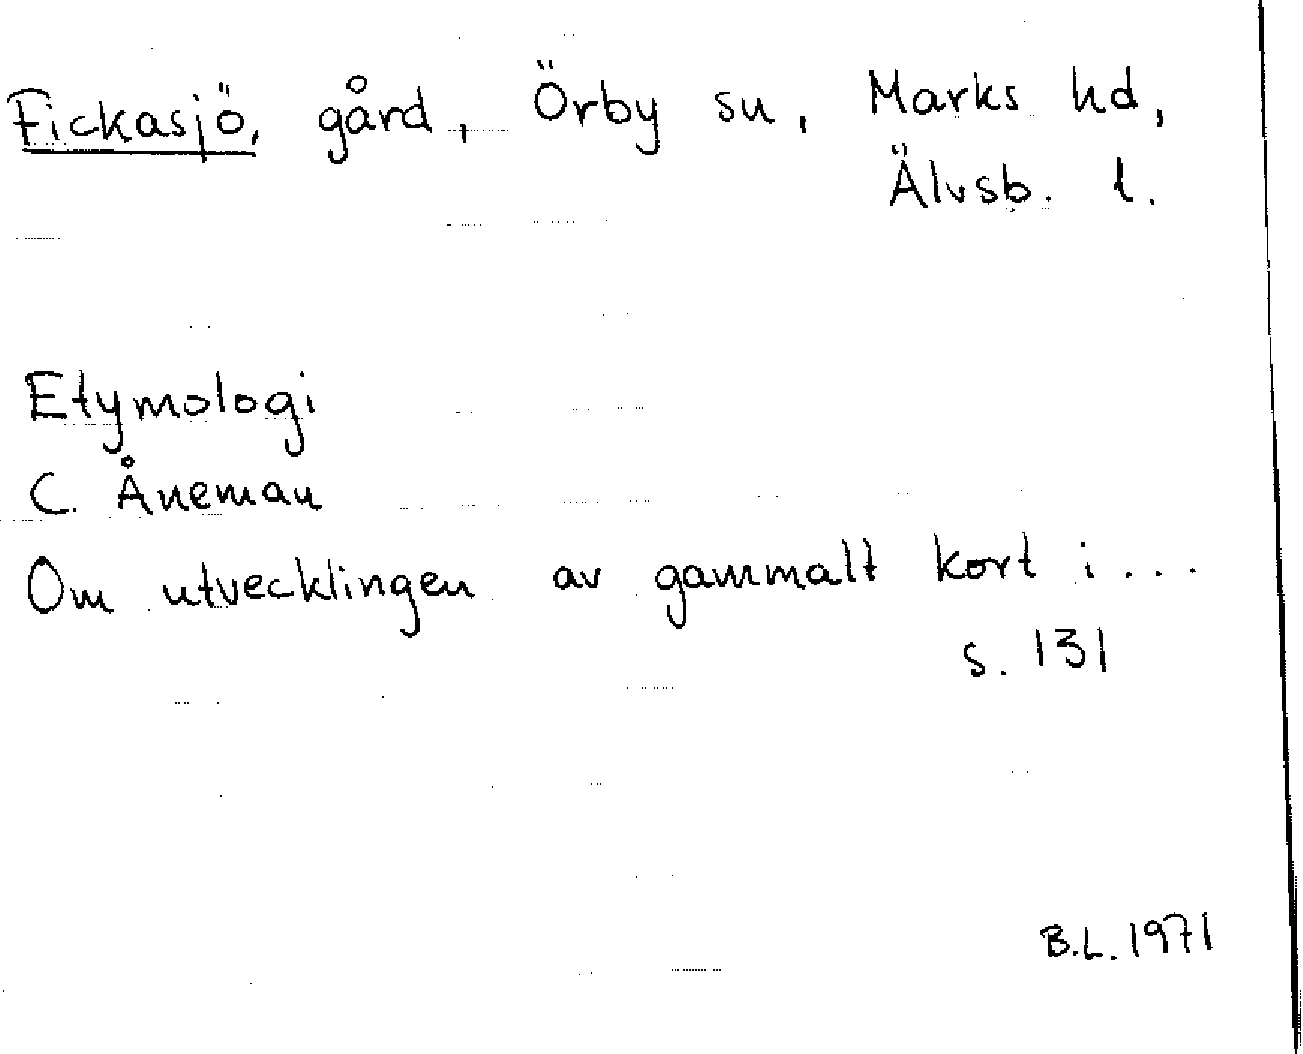 Fickasjö, gård, Örby sn, Marks hd,
Älvsb. l.
Etymologi
C. Åneman
Om utvecklingen av gammalt kort i...
s. 131
B.L. 1971